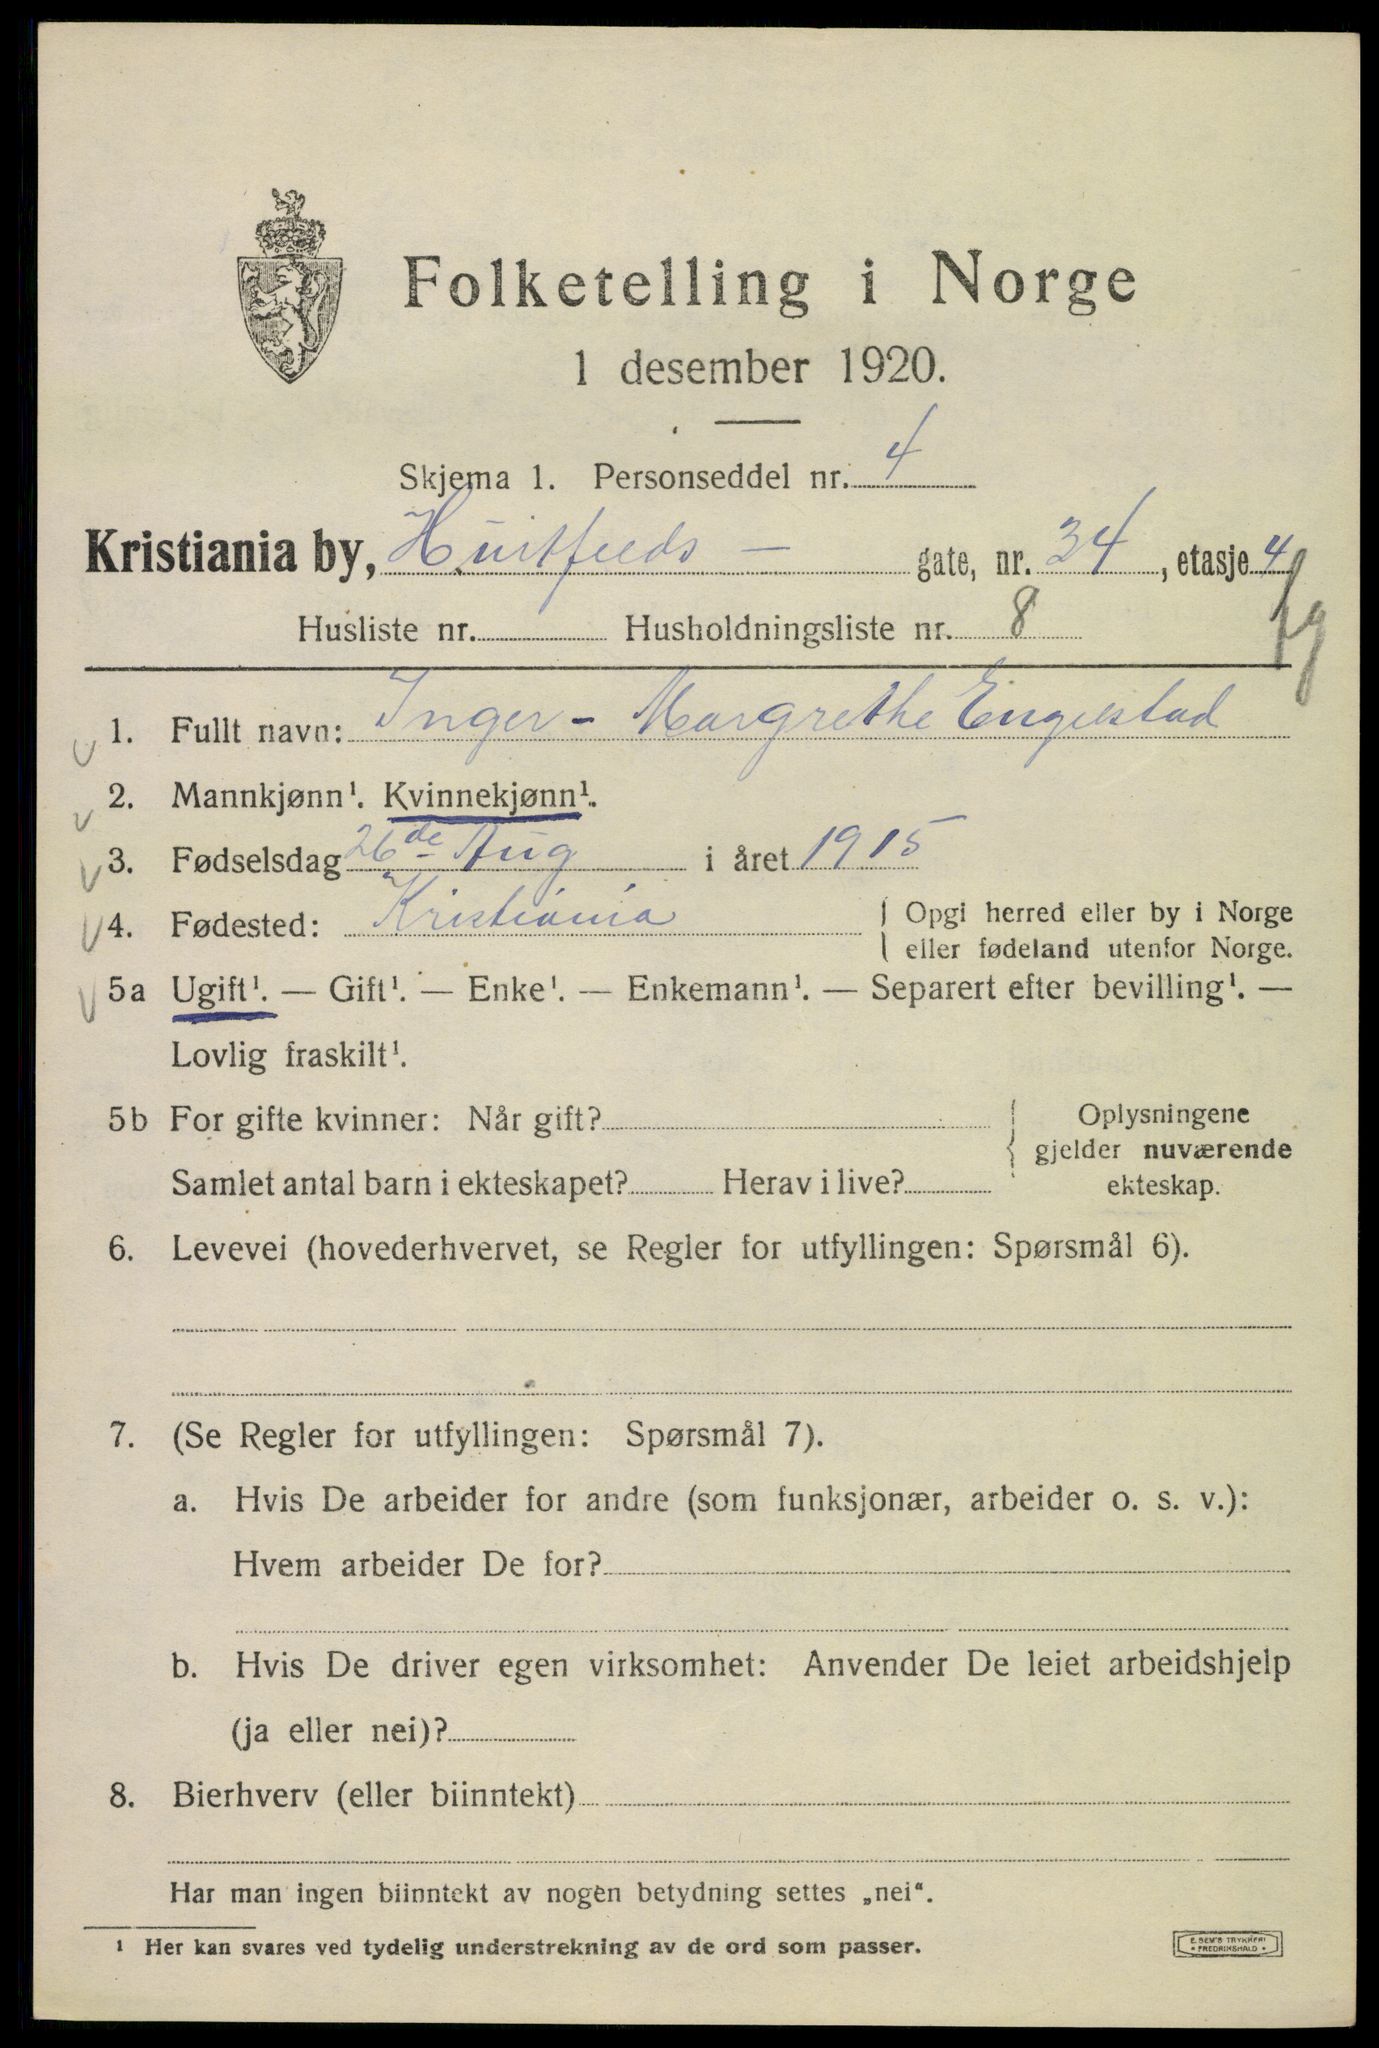 Folketelling i Norge
1 desember 1920.
Skjema 1. Personseddel nr. 4
Kristiania by, Huitfelds - gate, nr. 34, etasje 4
Husliste nr. Husholdningsliste nr. 8
1. Fullt navn: Inger - Margrethe Engelstad
2. Mannkjønn¹. Kvinnekjønn¹.
3. Fødselsdag 26de Aug i året 1915
4. Fødested: Kristiania { Opgi herred eller by i Norge
eller fødeland utenfor Norge.
5a Ugift¹. — Gift¹. — Enke¹. — Enkemann¹. — Separert efter bevilling¹. —
Lovlig fraskilt¹.
5b For gifte kvinner: Når gift? { Oplysningene
gjelder nuværende
Samlet antal barn i ekteskapet? Herav i live? ekteskap.
6. Levevei (hovederhvervet, se Regler for utfyllingen: Spørsmål 6).
7. (Se Regler for utfyllingen: Spørsmål 7).
a. Hvis De arbeider for andre (som funksjonær, arbeider o. s. v.):
Hvem arbeider De for?
b. Hvis De driver egen virksomhet: Anvender De leiet arbeidshjelp
(ja eller nei)?
8. Bierhverv (eller biinntekt)
Har man ingen biinntekt av nogen betydning settes „nei“.
¹ Her kan svares ved tydelig understrekning av de ord som passer.
E. SEM'S TRYKKERI
• FREDRIKSHALD •